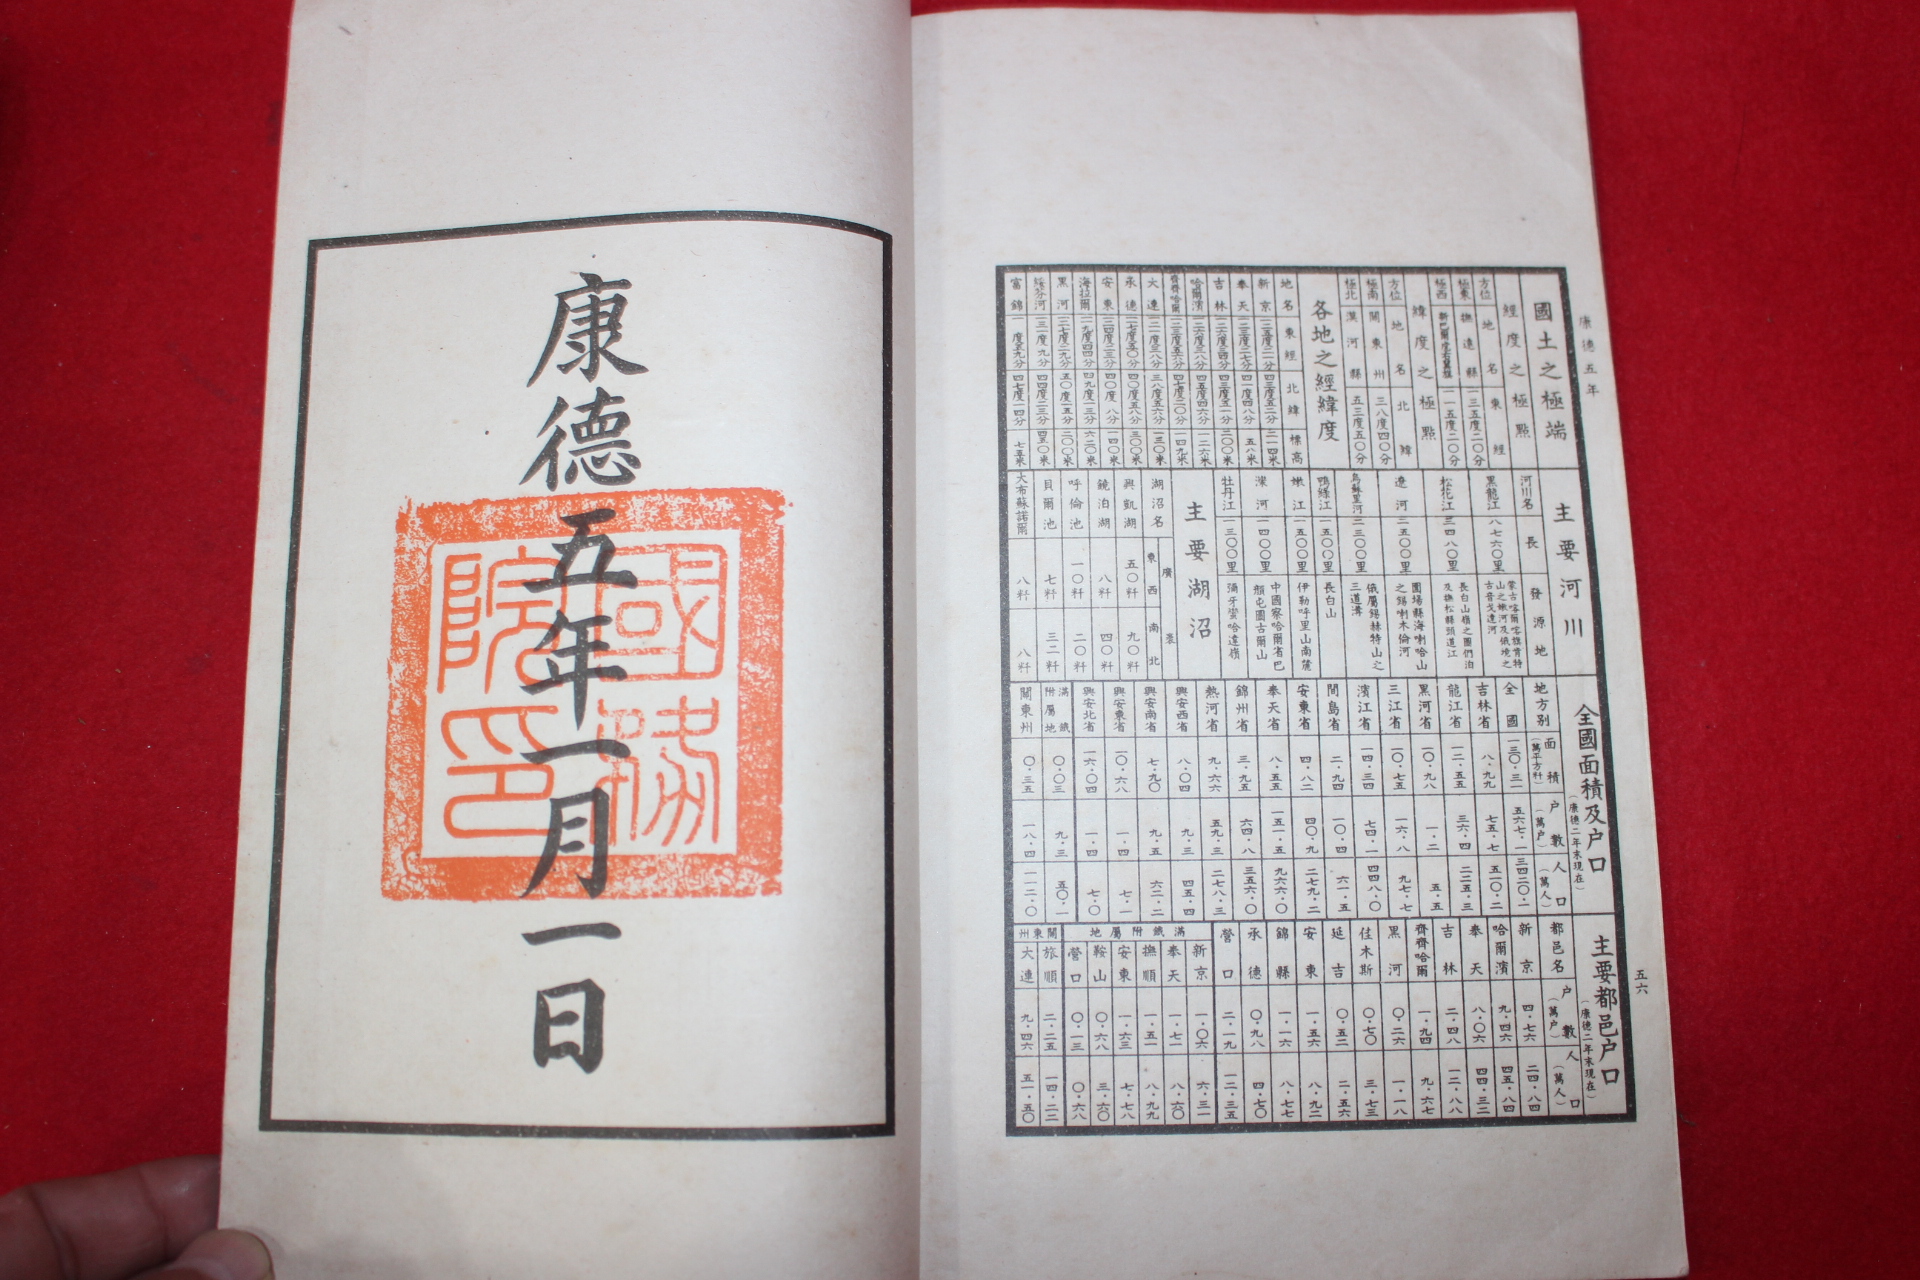 康德五年
五六
國土之極端
經度之極點
方位 地名 東經
極東 撫遠縣 一三五度二〇分
極西 新巴爾虎右翼旗 一一五度二〇分
緯度之極點
方位 地名 北緯
極南 關東州 三八度四〇分
極北 漠河縣 五三度五〇分
各地之經緯度
地名 東經 北緯 標高
新京 一二五度二一分 四三度五二分 二一四米
奉天 一二三度二七分 四一度四八分 五八米
吉林 一二六度三四分 四三度五一分 二〇〇米
哈爾濱 一二六度三八分 四五度四六分 一二六米
齊齊哈爾 一二三度五六分 四七度二〇分 一四九米
大連 一二一度三八分 三八度五六分 一三〇米
承德 一一七度五〇分 四〇度五八分 三〇〇米
安東 一二四度二三分 四〇度八分 一四〇米
海拉爾 一一九度四四分 四九度一三分 六二〇米
黑河 一二七度二九分 五〇度一五分 二〇〇米
綏芬河 一三一度九分 四四度二三分 四五〇米
富錦 四七度一四分 七五米
主要河川
河川名 長 發源地
黑龍江 八七六〇里
松花江 三四八〇里 長白山嶺之圖們泊及撫松縣頭道江
遼河 二五〇〇里 圍場縣海喇哈山之錫喇木倫河
烏蘇里河 二三〇〇里 俄屬錫赫特山之三道溝
鴨綠江 一五〇〇里 長白山
嫩江 一五〇〇里 伊勒呼里山南麓
灤河 一四〇〇里 中國察哈爾省巴顏屯圖古爾山
牡丹江 一三〇〇里
主要湖沼
湖沼名 廣袤 東西 南北
興凱湖 五〇粁 九〇粁
鏡泊湖 八粁 四〇粁
呼倫池 一〇粁 二〇粁
貝爾池 七粁 三二粁
大布蘇諾爾 八粁 八粁
全國面積及户口(康德二年末現在)
地方別 面積(萬平方粁) 户數(萬户) 人口(萬人)
全國 一三〇·三一 五六七·一 三四二〇·一
吉林省 八·九九 七五·七 五一〇·二
龍江省 一二·五五 三六·四 二二五·三
黑河省 一〇·九八 一·二 五·五
三江省 一〇·七五 一六·八 九七·七
濱江省 一四·三四 七四·一 四四八·〇
間島省 二·九四 一〇·四 六一·五
安東省 四·八二 四〇·九 二七九·二
奉天省 八·五五 一五一·五 九六六·〇
錦州省 三·九五 六四·八 三五六·〇
熱河省 九·六六 五九·三 二七八·三
興安西省 八·〇四 九·三 四五·四
興安南省 七·九〇 九·五 六二·二
興安東省 一〇·六八 一·四 七·一
興安北省 一六·〇四 一·四 七·〇
滿鐵附屬地 〇·〇三 九·三 五〇·一
關東州 〇·三五 一八·四 一一二·〇
主要都邑户口(康德二年末現在)
都邑名 户數(萬户) 人口(萬人)
新京 四·七六 二四·八四
哈爾濱 九·四六 四五·八四
奉天 八·〇六 四四·三二
吉林 二·四八 一二·八八
齊齊哈爾 一·九四 九·六七
黑河 〇·二六 一·一八
佳木斯 〇·七〇 三·七三
延吉 〇·五二 二·五六
安東 一·五六 八·九二
錦縣 一·一六 八·七七
承德 〇·九八 四·七〇
營口 二·一九 一二·三五
滿鐵附屬地
新京 一·〇六 六·三一
奉天 一·七一 八·六〇
撫順 一·五一 八·九九
安東 一·六三 七·七八
鞍山 〇·六八 三·六〇
營口 〇·一三 〇·六八
關東州
旅順 二·二五 一四·二二
大連 九·四六 五一·五〇
康德五年一月一日
國務院印